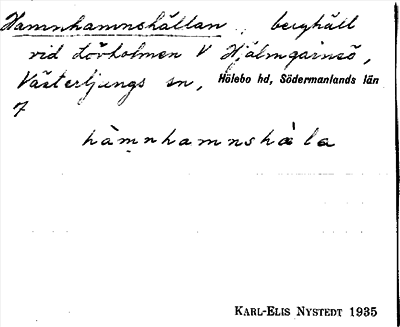 Hamnhamnshällan, berghäll
vid Lövholmen V Hjälmgarnsö,
Västerljungs sn, Hölebo hd, Södermanlands län
7
hàmnhamnshàla
KARL-ELIS NYSTEDT 1935